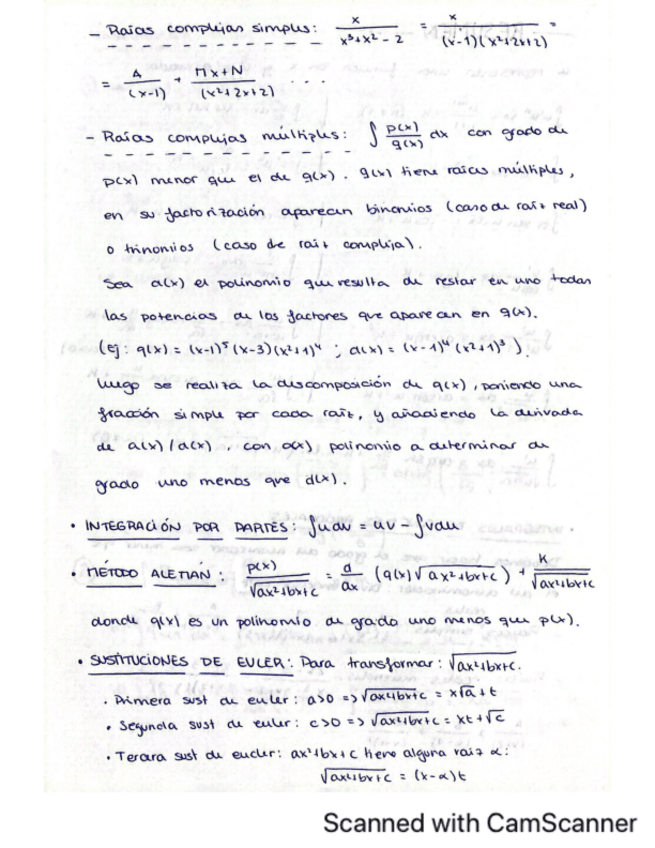 - Raíces complejas simples: x/(x³+x²-2) = x/((x-1)(x²+2x+2)) =
= A/(x-1) + (Mx+N)/(x²+2x+2) . .
- Raíces complejas múltiples: ∫ p(x)/q(x) dx con grado de
p(x) menor que el de q(x). q(x) tiene raíces múltiples,
en su factorización aparecen binomios (caso de raíz real)
o trinomios (caso de raíz compleja).
Sea d(x) el polinomio que resulta de restar en uno todas
las potencias de los factores que aparecen en q(x).
(ej: q(x) = (x-1)⁵ (x-3)(x²+1)⁴ ; d(x) = (x-1)⁴ (x²+1)³ ).
Luego se realiza la descomposición de q(x), poniendo una
fracción simple por cada raíz, y añadiendo la derivada
de a(x)/d(x), con a(x) polinomio a determinar de
grado uno menos que d(x).
• INTEGRACIÓN POR PARTES: ∫udv = uv - ∫vdu
• MÉTODO ALEMÁN: p(x)/√ax²+bx+c = d/dx (q(x)√ax²+bx+c) + K/√ax²+bx+c
donde q(x) es un polinomio de grado uno menos que p(x).
• SUSTITUCIONES DE EULER: Para transformar: √ax²+bx+c.
• Primera sust de euler: a>0 => √ax²+bx+c = x√a + t
• Segunda sust de euler: c>0 => √ax²+bx+c = xt+√c
• Tercera sust de euler: ax²+bx+c tiene alguna raíz α:
√ax²+bx+c = (x-α)t
Scanned with CamScanner